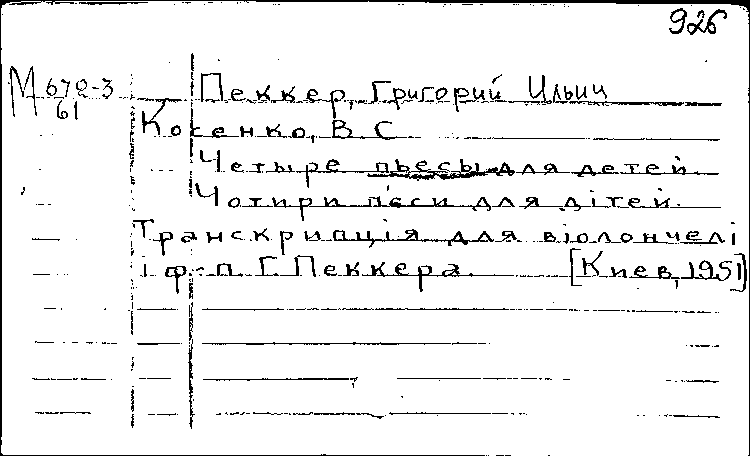 926
М 672-3
61
Пеккер, Григорий Ильич
Косенко, В. С.
Четыре пьесы для детей.
Чотири п'єси для дітей.
Транскрипція для віолончелі
і ф.-п. Г. Пеккера. [Киев, 1951]